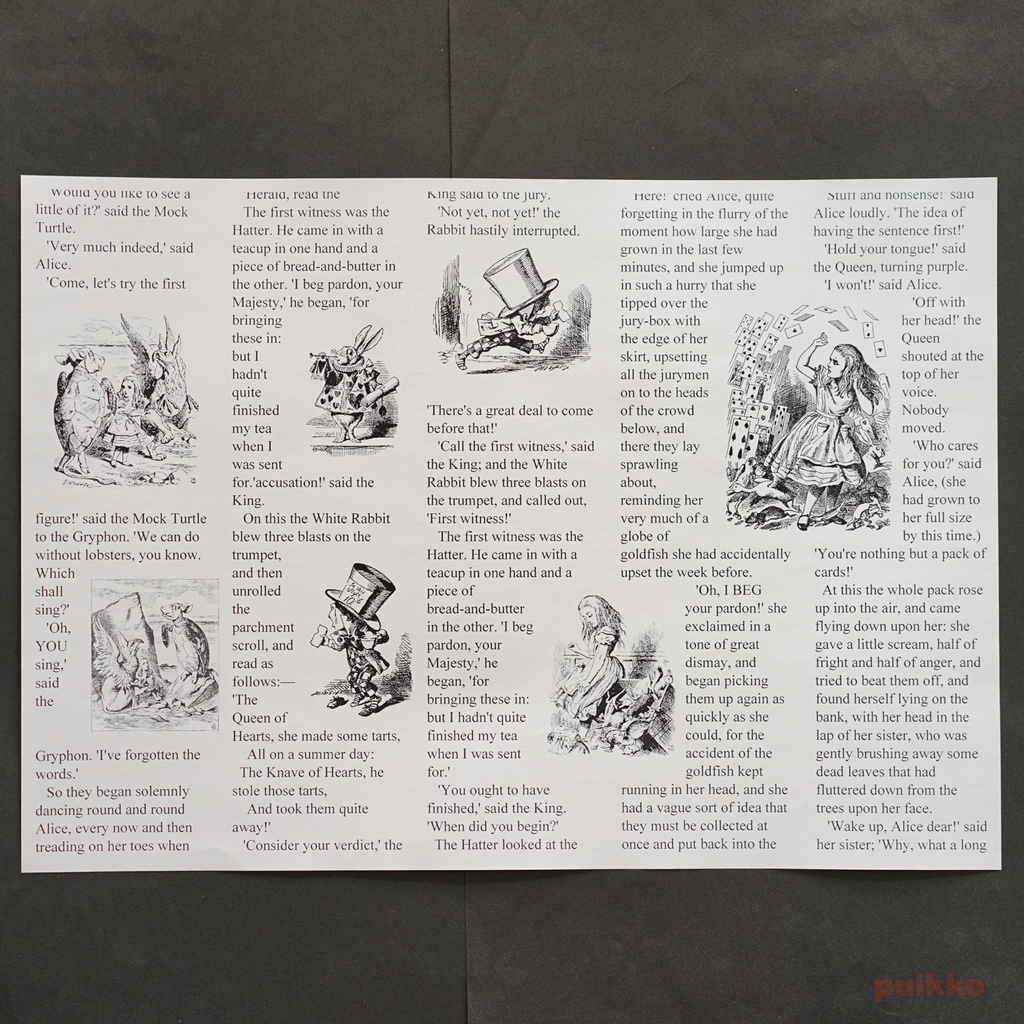 would you like to see a
little of it?' said the Mock
Turtle.
'Very much indeed,' said
Alice.
'Come, let's try the first
figure!' said the Mock Turtle
to the Gryphon. 'We can do
without lobsters, you know.
Which
shall
sing?'
'Oh,
YOU
sing,'
said
the
Gryphon. 'I've forgotten the
words.'
So they began solemnly
dancing round and round
Alice, every now and then
treading on her toes when
Herald, read the
The first witness was the
Hatter. He came in with a
teacup in one hand and a
piece of bread-and-butter in
the other. 'I beg pardon, your
Majesty,' he began, 'for
bringing
these in:
but I
hadn't
quite
finished
my tea
when I
was sent
for.'accusation!' said the
King.
On this the White Rabbit
blew three blasts on the
trumpet,
and then
unrolled
the
parchment
scroll, and
read as
follows:—
'The
Queen of
Hearts, she made some tarts,
All on a summer day:
The Knave of Hearts, he
stole those tarts,
And took them quite
away!'
'Consider your verdict,' the
King said to the jury.
'Not yet, not yet!' the
Rabbit hastily interrupted.
'There's a great deal to come
before that!'
'Call the first witness,' said
the King; and the White
Rabbit blew three blasts on
the trumpet, and called out,
'First witness!'
The first witness was the
Hatter. He came in with a
teacup in one hand and a
piece of
bread-and-butter
in the other. 'I beg
pardon, your
Majesty,' he
began, 'for
bringing these in:
but I hadn't quite
finished my tea
when I was sent
for.'
'You ought to have
finished,' said the King.
'When did you begin?'
The Hatter looked at the
'Here!' cried Alice, quite
forgetting in the flurry of the
moment how large she had
grown in the last few
minutes, and she jumped up
in such a hurry that she
tipped over the
jury-box with
the edge of her
skirt, upsetting
all the jurymen
on to the heads
of the crowd
below, and
there they lay
sprawling
about,
reminding her
very much of a
globe of
goldfish she had accidentally
upset the week before.
'Oh, I BEG
your pardon!' she
exclaimed in a
tone of great
dismay, and
began picking
them up again as
quickly as she
could, for the
accident of the
goldfish kept
running in her head, and she
had a vague sort of idea that
they must be collected at
once and put back into the
'Stuff and nonsense!' said
Alice loudly. 'The idea of
having the sentence first!'
'Hold your tongue!' said
the Queen, turning purple.
'I won't!' said Alice.
'Off with
her head!' the
Queen
shouted at the
top of her
voice.
Nobody
moved.
'Who cares
for you?' said
Alice, (she
had grown to
her full size
by this time.)
'You're nothing but a pack of
cards!'
At this the whole pack rose
up into the air, and came
flying down upon her: she
gave a little scream, half of
fright and half of anger, and
tried to beat them off, and
found herself lying on the
bank, with her head in the
lap of her sister, who was
gently brushing away some
dead leaves that had
fluttered down from the
trees upon her face.
'Wake up, Alice dear!' said
her sister; 'Why, what a long
puikko